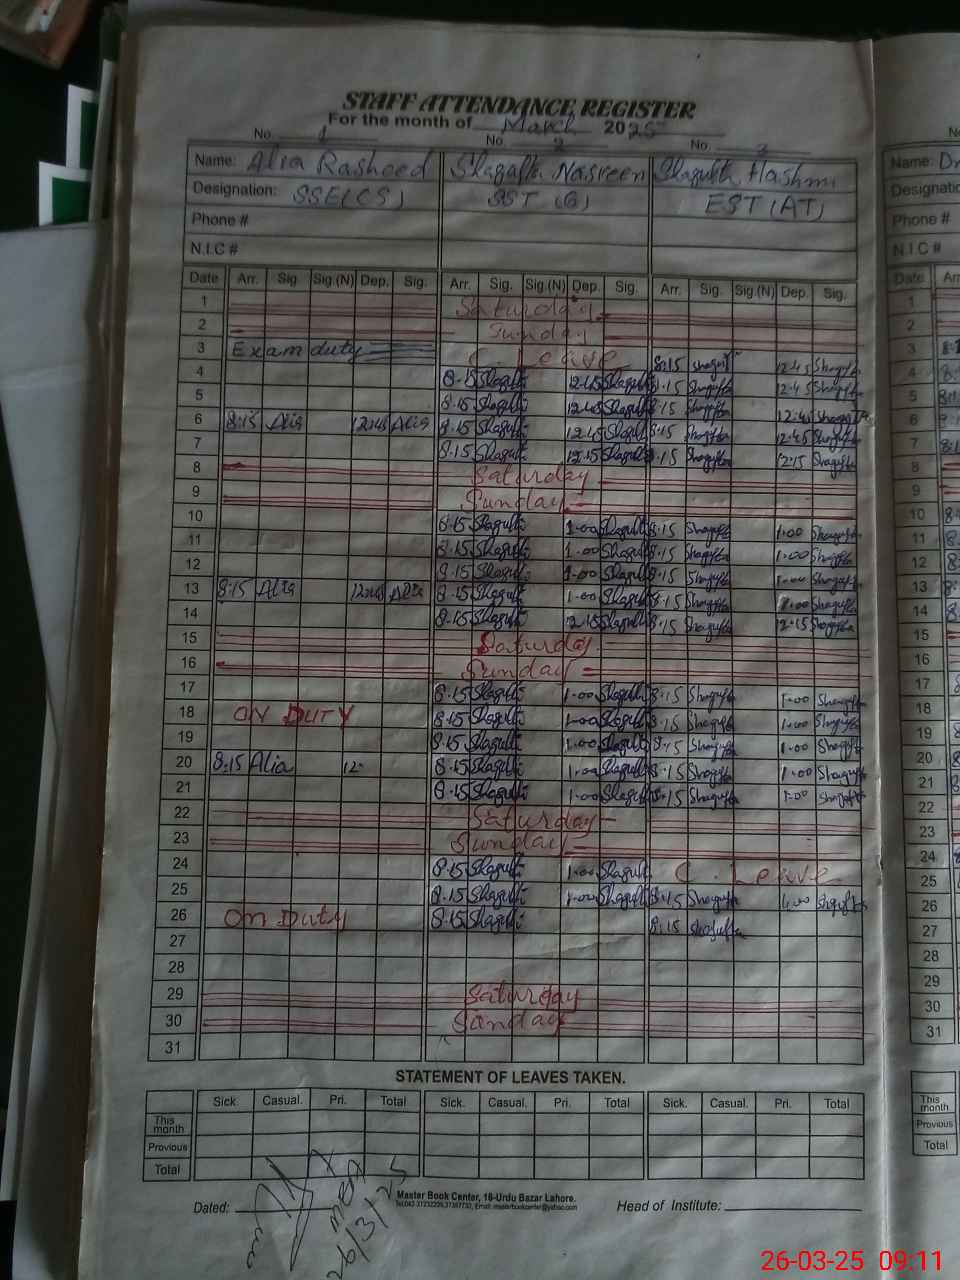 STAFF ATTENDANCE REGISTER
For the month of March 2025
No. 1 No. 2 No. 3
Name: Alia Rasheed Shagufta Nasreen Shagufta Hashmi
Designation: SSE(CS) SST (G) EST (AT)
Phone #
N.I.C #
Date Arr. Sig. Sig.(N) Dep. Sig. Arr. Sig. Sig.(N) Dep. Sig. Arr. Sig. Sig.(N) Dep. Sig.
1 Saturday
2 Sunday
3 Exam duty C. Leave 8:15 Shagufta 12:45 Shagufta
4 8:15 Shagufta 12:45 Shagufta 8:15 Shagufta 12:45 Shagufta
5 8:15 Shagufta 12:45 Shagufta 8:15 Shagufta 12:45 Shagufta
6 8:15 Alia 12:45 Alia 8:15 Shagufta 12:45 Shagufta 8:15 Shagufta 12:45 Shagufta
7 8:15 Shagufta 12:15 Shagufta 8:15 Shagufta 12:15 Shagufta
8 Saturday
9 Sunday
10 8:15 Shagufta 1:00 Shagufta 8:15 Shagufta 1:00 Shagufta
11 8:15 Shagufta 1:00 Shagufta 8:15 Shagufta 1:00 Shagufta
12 8:15 Shagufta 1:00 Shagufta 8:15 Shagufta 1:00 Shagufta
13 8:15 Alia Alia 8:15 Shagufta 1:00 Shagufta 8:15 Shagufta 1:00 Shagufta
14 8:15 Shagufta 12:15 Shagufta 8:15 Shagufta 12:15 Shagufta
15 Saturday
16 Sunday
17 8:15 Shagufta 1:00 Shagufta 8:15 Shagufta 1:00 Shagufta
18 ON DUTY 8:15 Shagufta 1:00 Shagufta 8:15 Shagufta 1:00 Shagufta
19 8:15 Shagufta 1:00 Shagufta 8:15 Shagufta 1:00 Shagufta
20 8:15 Alia 12 8:15 Shagufta 1:00 Shagufta 8:15 Shagufta 1:00 Shagufta
21 8:15 Shagufta 1:00 Shagufta 8:15 Shagufta 1:00 Shagufta
22 Saturday
23 Sunday
24 8:15 Shagufta 1:00 Shagufta C. Leave
25 8:15 Shagufta 1:00 Shagufta 8:15 Shagufta 1:00 Shagufta
26 On Duty 8:15 Shagufta 8:15 Shagufta
27
28
29 Saturday
30 Sunday
31
STATEMENT OF LEAVES TAKEN.
Sick. Casual. Pri. Total Sick. Casual. Pri. Total Sick. Casual. Pri. Total
This month
Previous
Total
Dated: MEA 26/3/25
Master Book Center, 16-Urdu Bazar Lahore.
Head of Institute:
Name: Dr
Designation
Phone #
N.I.C #
Date Arr
1
2
3
4
5
6
7
8
9
10
11
12
13
14
15
16
17
18
19
20
21
22
23
24
25
26
27
28
29
30
31
This month
Previous
Total
26-03-25 09:11